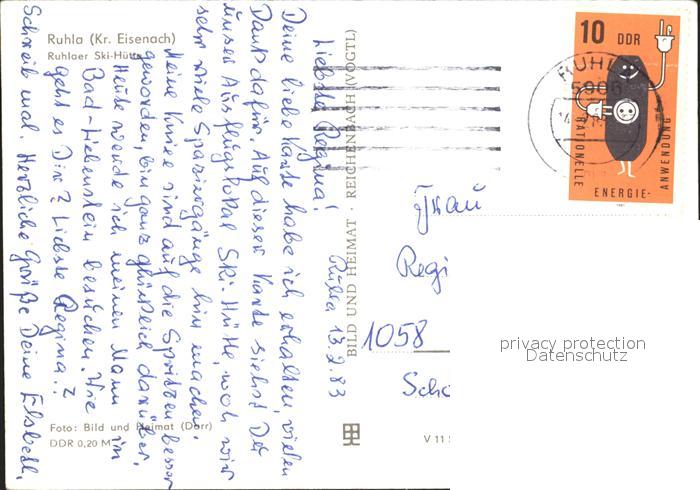 Ruhla (Kr. Eisenach)
Ruhlaer Ski-Hütte
Ruhla 13.2.83
Liebste Regina!
Deine liebe Karte habe ich erhalten, vielen
Dank dafür. Auf dieser Karte siehst Du
unser Ausflugslokal Ski-Hütte, woh wir
sehr viele Spaziergänge hin machen.
Meine Kniee sind auf die Spritzen besser
geworden, bin ganz glücklich darüber.
Heute werde ich meinen Mann in
Bad-Liebenstein besuchen. Wie
geht es Dir? Liebste Regina!?
Schreib mal. Herzliche Grüße Deine Elsbeth.
Foto: Bild und Heimat (Dörr)
DDR 0,20 M
BILD UND HEIMAT REICHENBACH (VOGTL)
V 11
10 DDR
RATIONELLE
ENERGIE-
ANWENDUNG
1981
RUHLA
5906
Frau
Regi
1058
Schö
privacy protection
Datenschutz